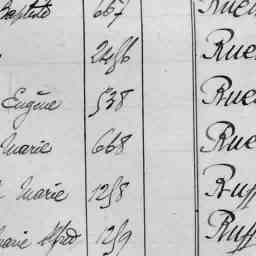 Baptiste 667 Rue
2486 Rue
Eugène 538 Rue
Marie 668 Rue
Marie 1258 Ruff
Marie Alfred 1259 Ruff